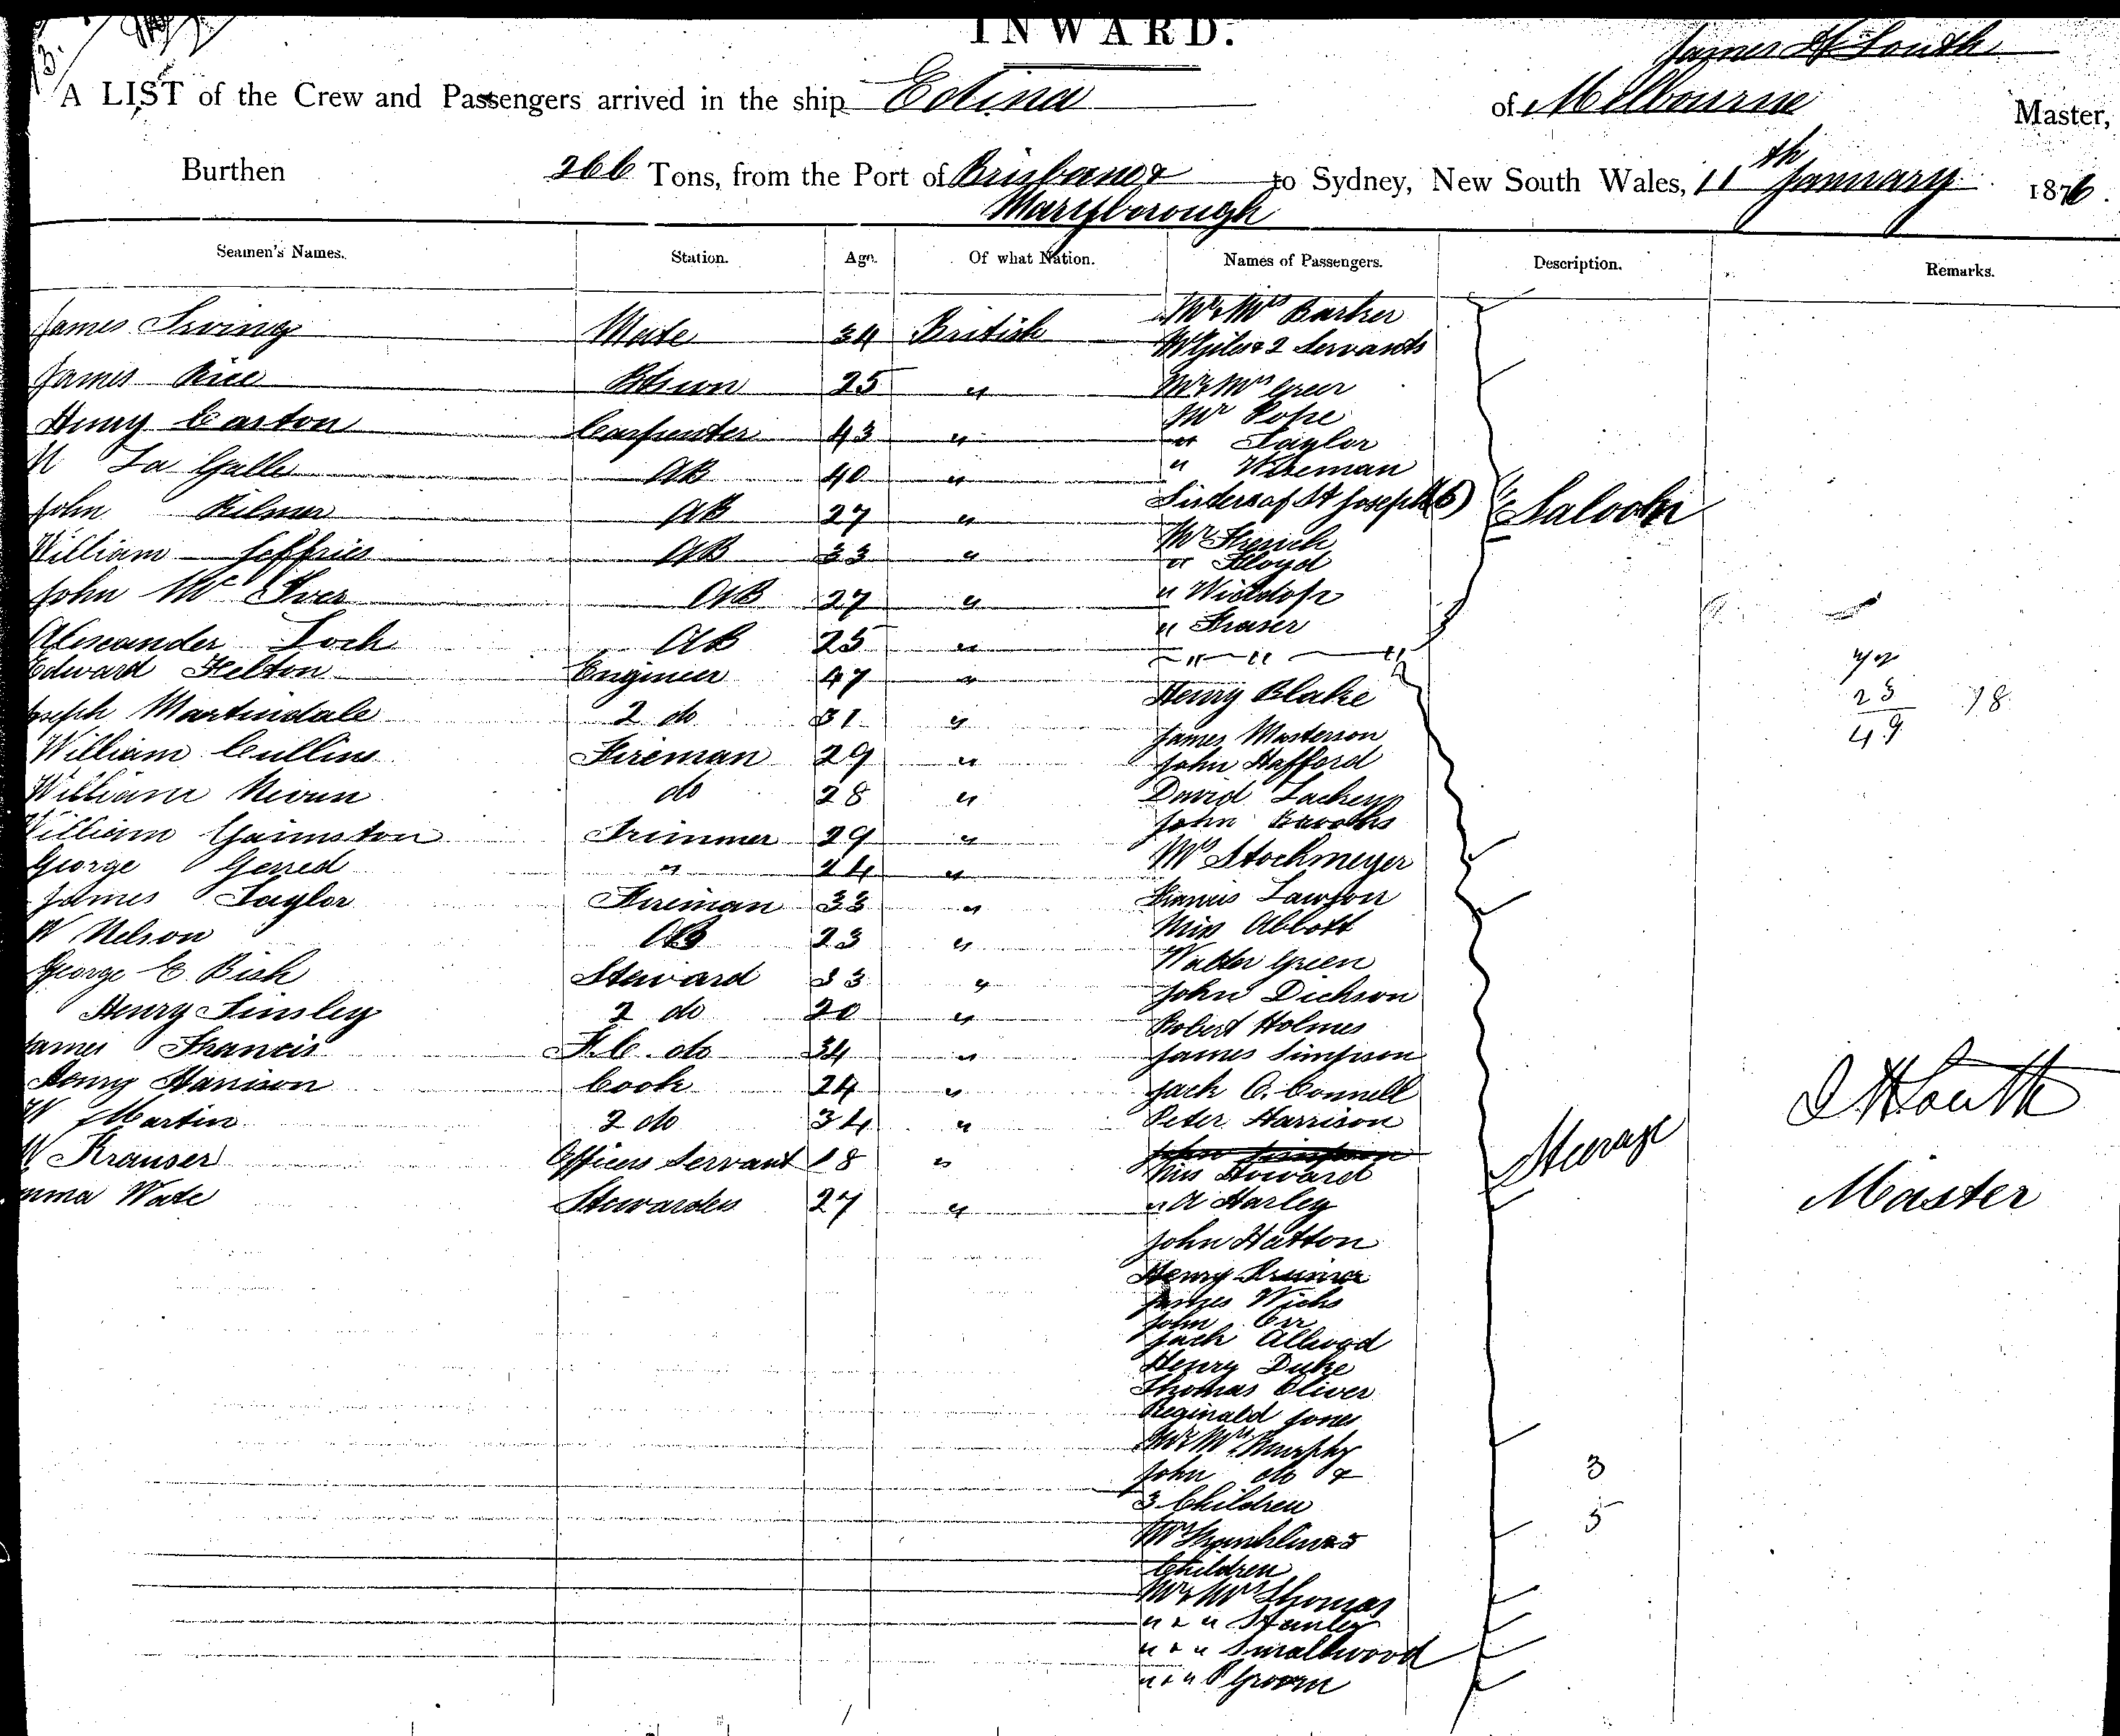 INWARD.
James H South
A LIST of the Crew and Passengers arrived in the ship Edina of Melbourne Master,
Burthen 266 Tons, from the Port of Brisbane & to Sydney, New South Wales, 11th January 1876.
Maryborough
Seamen's Names. Station. Age. Of what Nation. Names of Passengers. Description. Remarks.
James Irving Mate 34 British
James Rice Btsun 25 "
Henry Caston Carpenter 43 "
La Galle AB 40 "
John Kilner AB 27 "
William Jeffries AB 33 "
John McIver AB 27 "
Alexander Loch AB 25 "
Edward Felton Engineer 47 "
Joseph Martindale 2 do 31 "
William Cullins Fireman 29 "
William Niven do 28 "
William Gaunston Trimmer 29 "
George Gerred " 24 "
James Taylor Fireman 33 "
W Nelson AB 23 "
George E. Bish Steward 33 "
Henry Tinsley 2 do 20 "
James Francis F.C. do 34 "
Henry Harrison Cook 24 "
W Martin 2 do 34 "
W Krauser Officers Servant 18 "
Emma Wate Stewardess 27 "
Mr & Mrs Barker
Giles & 2 Servants
Mr & Mrs Greer
Mr Pope
" Taylor
" Wiseman
Sisters of St Joseph (6)
Mr French
" Floyd
" Wieldop
" Fraser
" " "
Saloon
Henry Blake
James Masterson
John Hafford
David Lackey
John
Mrs Stockmeyer
Francis Lawson
Miss Abbott
Walter Green
John Dickson
Robert Holmes
James Simpson
Jack O.Connell
Peter Harrison
John Simpson
Miss Howard
" A Harley
John Hatton
Henry
James Wicks
John Orr
Jack Allwood
Henry Duke
Thomas Oliver
Reginald Jones
Mr & Mrs Murphy
John do &
3 Children
& 5
Children
Mr & Mrs Thomas
" & " Stanley
" & " Smallwood
" & " Groom
Steerage
3
5
72
23
49
78
J H South
Master